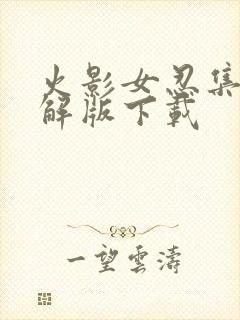 火影女忍集
解版下載
一望雲濤